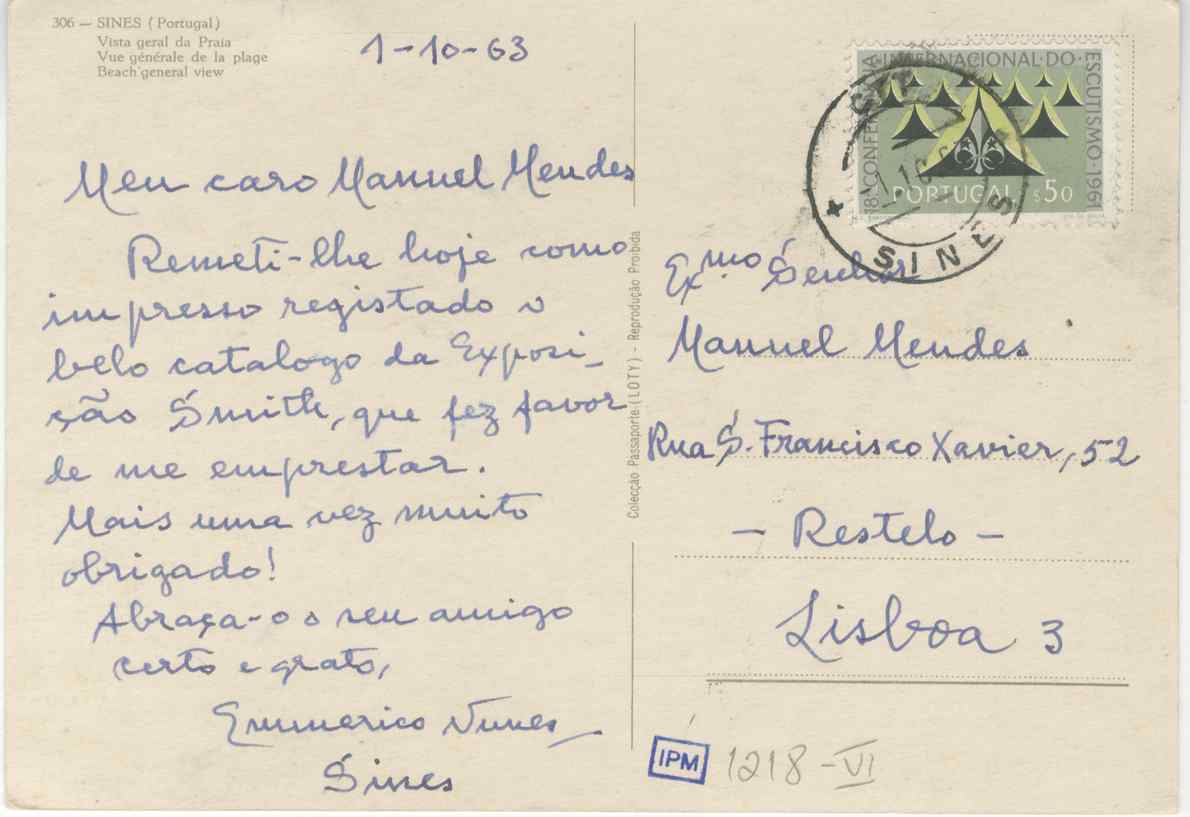 306 — SINES (Portugal)
Vista geral da Praia
Vue générale de la plage
Beach general view
1-10-63
Meu caro Manuel Mendes
Remeti-lhe hoje como
impresso registado o
belo catalogo da Exposi-
ção Smith, que fez favor
de me emprestar.
Mais uma vez muito
obrigado!
Abraça-o o seu amigo
certo e grato,
Emmerico Nunes
Sines
Colecção Passaporte (LOTY) - Reprodução Proibida
18ª CONFERÊNCIA INTERNACIONAL·DO·ESCUTISMO·1961
PORTUGAL $50
SINES
Ex.mo Senhor
Manuel Mendes
Rua S. Francisco Xavier, 52
— Restelo —
Lisboa 3
IPM 1218-VI